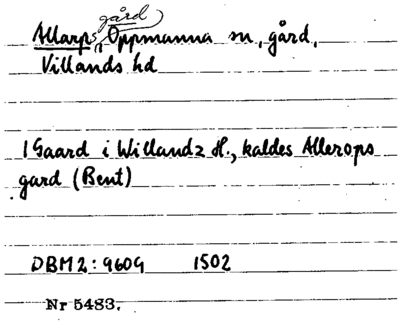 Allarps gård, Oppmanna sn, gård,
Villands hd
1 Gaard i Willandz H., kaldes Allerops
gard (Bent)
DBM2: 9609 1502
Nr 5483.